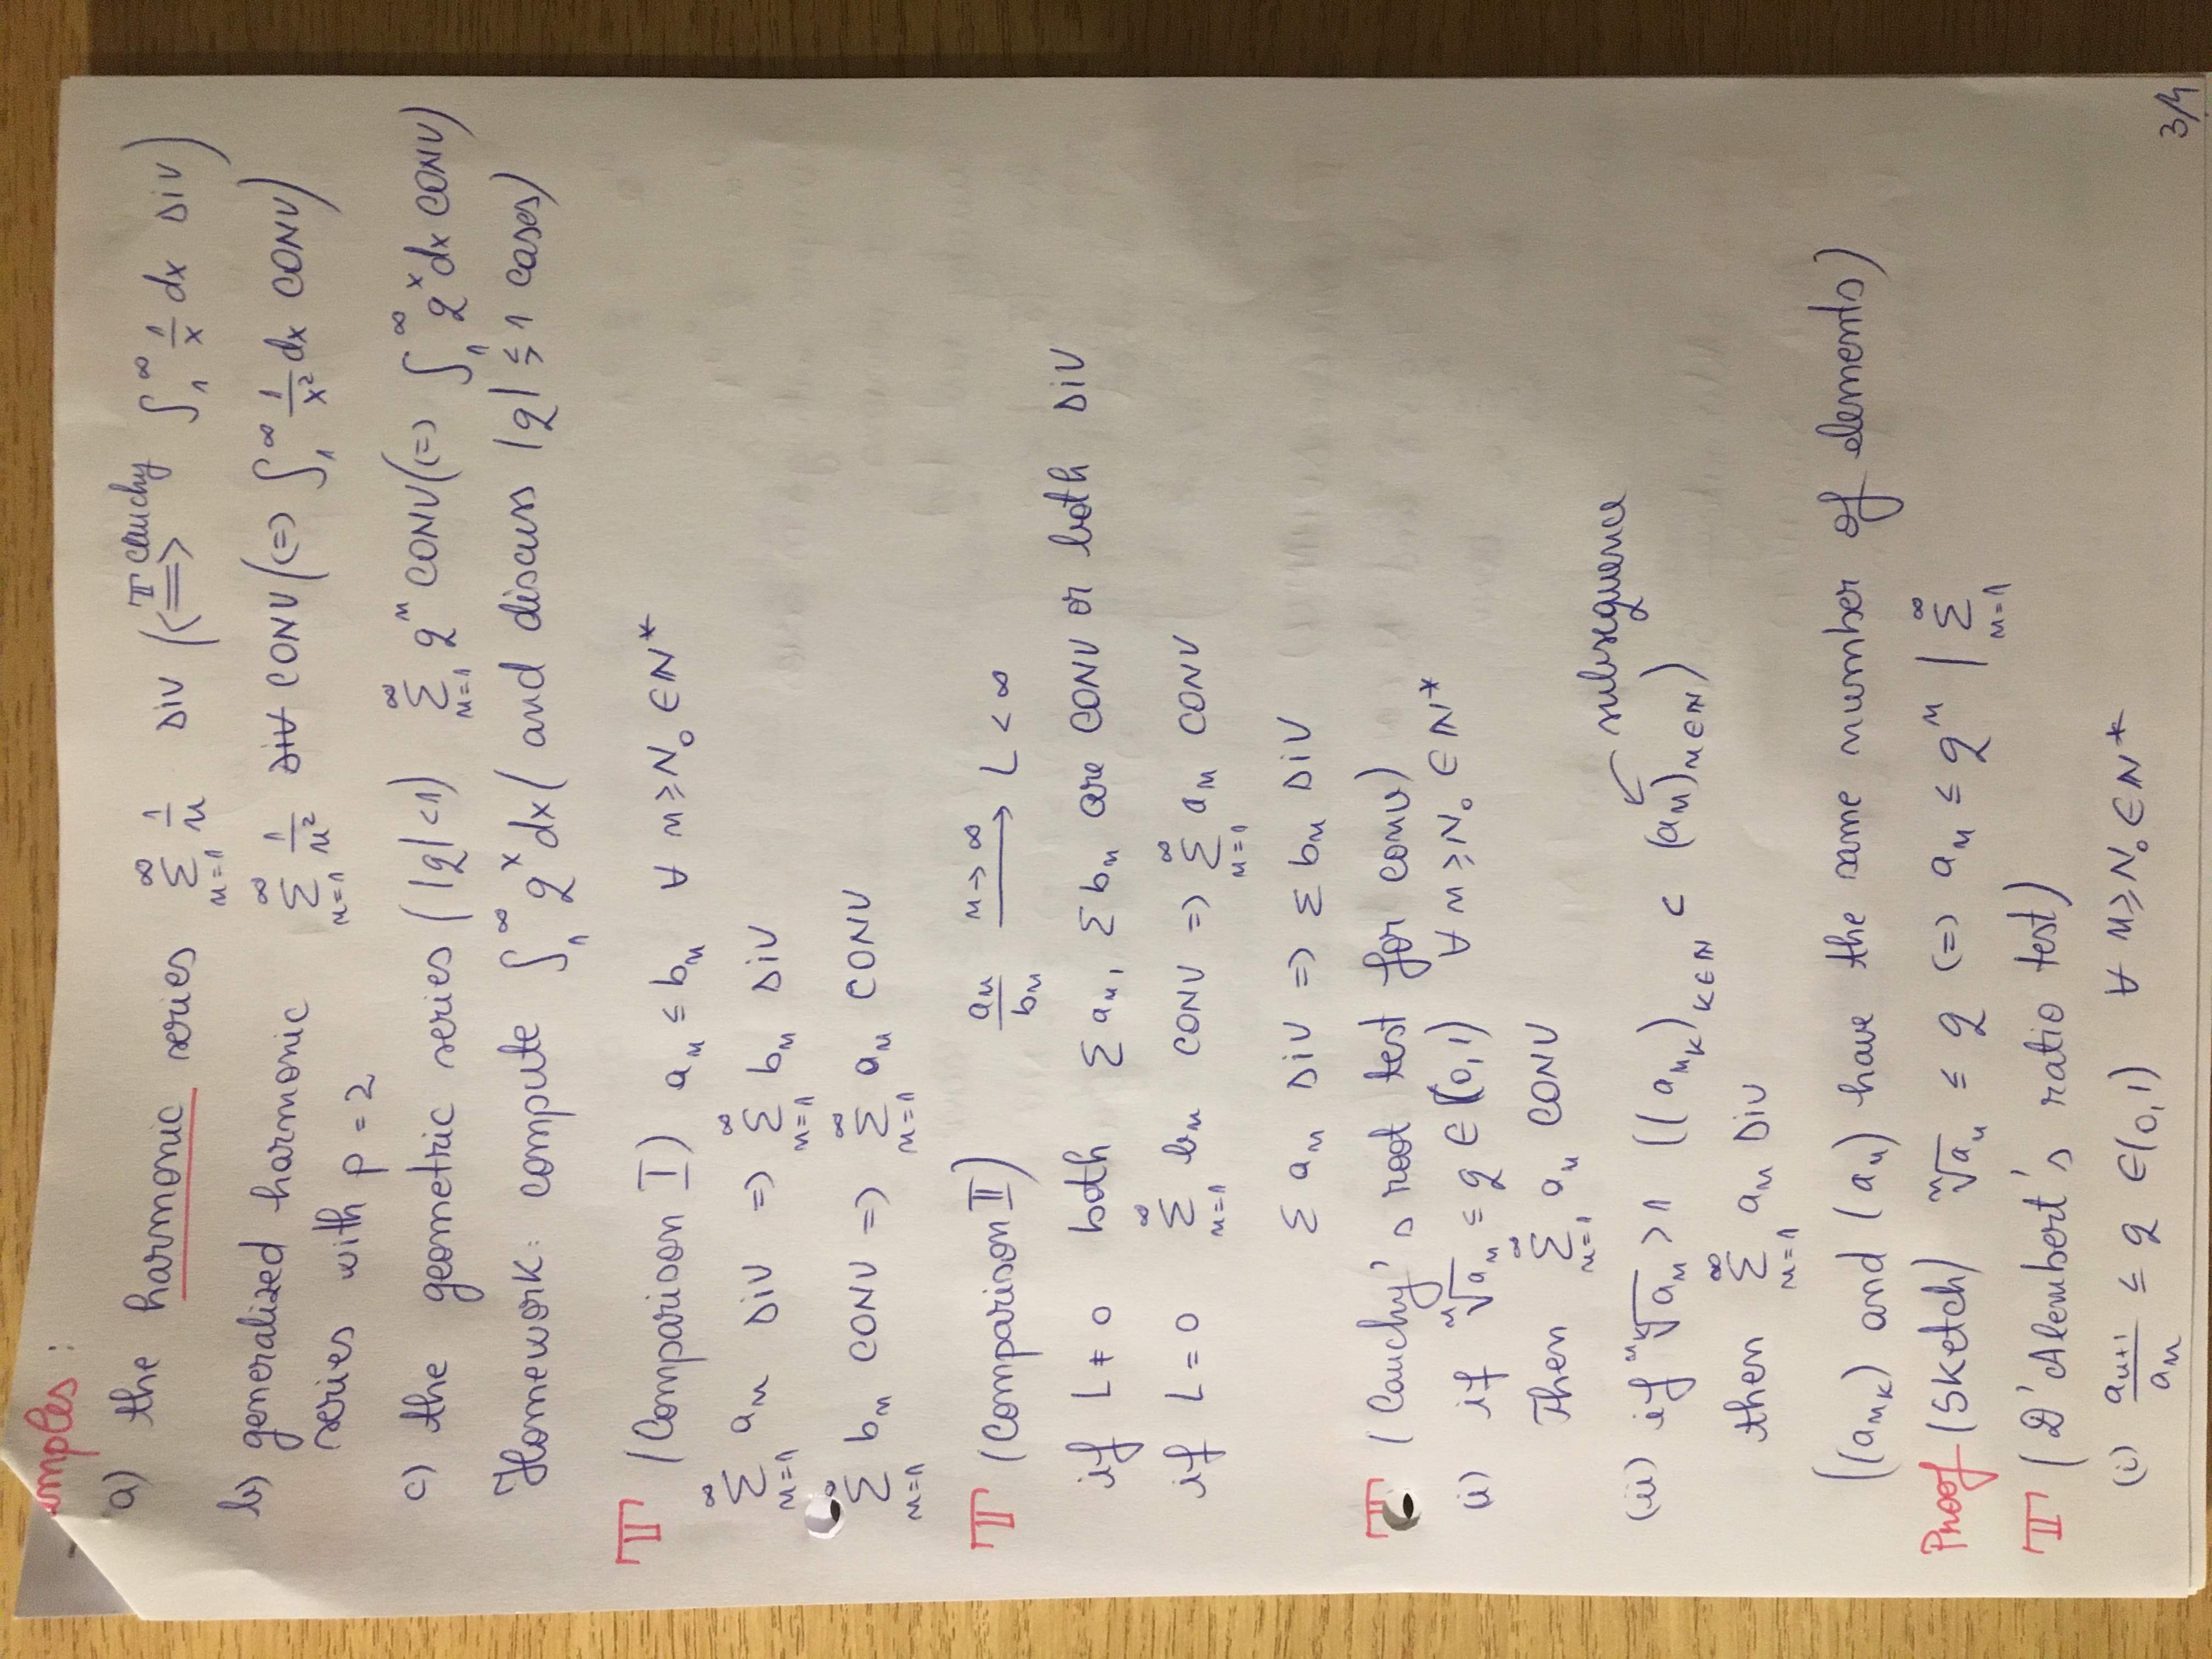 mples :
a) the harmonic series ∞ Σ n=1 1/n DIV (<=> T Cauchy ∫₁^∞ 1/x dx DIV)
b) generalized harmonic series with p = 2 ∞ Σ n=1 1/n² DIV CONV (<=> ∫₁^∞ 1/x² dx CONV)
c) the geometric series (|q|<1) ∞ Σ n=1 qⁿ CONV (<=> ∫₁^∞ qˣ dx CONV)
Homework: compute ∫₁^∞ qˣ dx (and discuss |q| ≶ 1 cases)
T (Comparison I) aₙ ≤ bₙ ∀ n ≥ N₀ ∈ N*
∞ Σ n=1 aₙ DIV => ∞ Σ n=1 bₙ DIV
∞ Σ n=1 bₙ CONV => ∞ Σ n=1 aₙ CONV
T (Comparison II) aₙ/bₙ n→∞ ⟶ L < ∞
if L ≠ 0 both Σ aₙ, Σ bₙ are CONV or both DIV
if L = 0 ∞ Σ n=1 bₙ CONV => ∞ Σ n=1 aₙ CONV
Σ aₙ DIV => Σ bₙ DIV
T (Cauchy's root test for conv)
(i) if ⁿ√aₙ ≤ q ∈ (0,1) ∀ n ≥ N₀ ∈ N*
Then ∞ Σ n=1 aₙ CONV
subsequence
(ii) if ⁿᵏ√aₙ > 1 ((a_{n_k})_{k∈N} ⊂ (aₙ)_{n∈N})
then ∞ Σ n=1 aₙ DIV
((a_{n_k}) and (aₙ) have the same number of elements)
Proof (Sketch) ⁿ√aₙ ≤ q <=> aₙ ≤ qⁿ | ∞ Σ n=1
T (D'Alembert's ratio test)
(i) aₙ₊₁/aₙ ≤ q ∈ (0,1) ∀ n ≥ N₀ ∈ N*